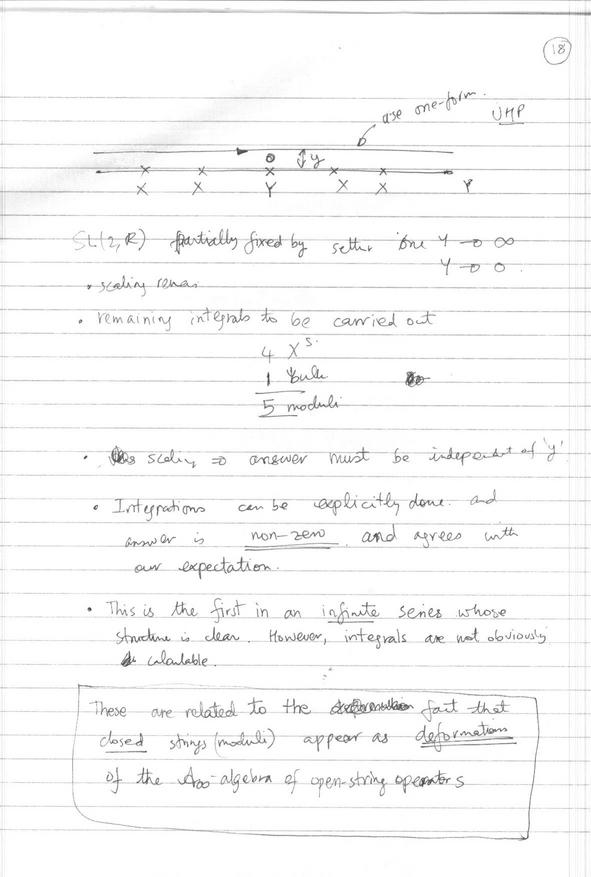 18
use one-form.
UHP
y
x x x x x
X X Y X X Y
SL(2,R) partially fixed by one Y → ∞
Y → 0.
• scaling
• remaining integrals to be carried out
4 X's.
1 bulk
5 moduli
• scaling ⇒ answer must be independent of 'y'
• Integrations can be explicitly done. and
answer is non-zero and agrees with
our expectation.
• This is the first in an infinite series whose
structure is clear. However, integrals are not obviously
calculable.
These are related to the fact that
closed strings (moduli) appear as deformations
of the A∞-algebra of open-string operators